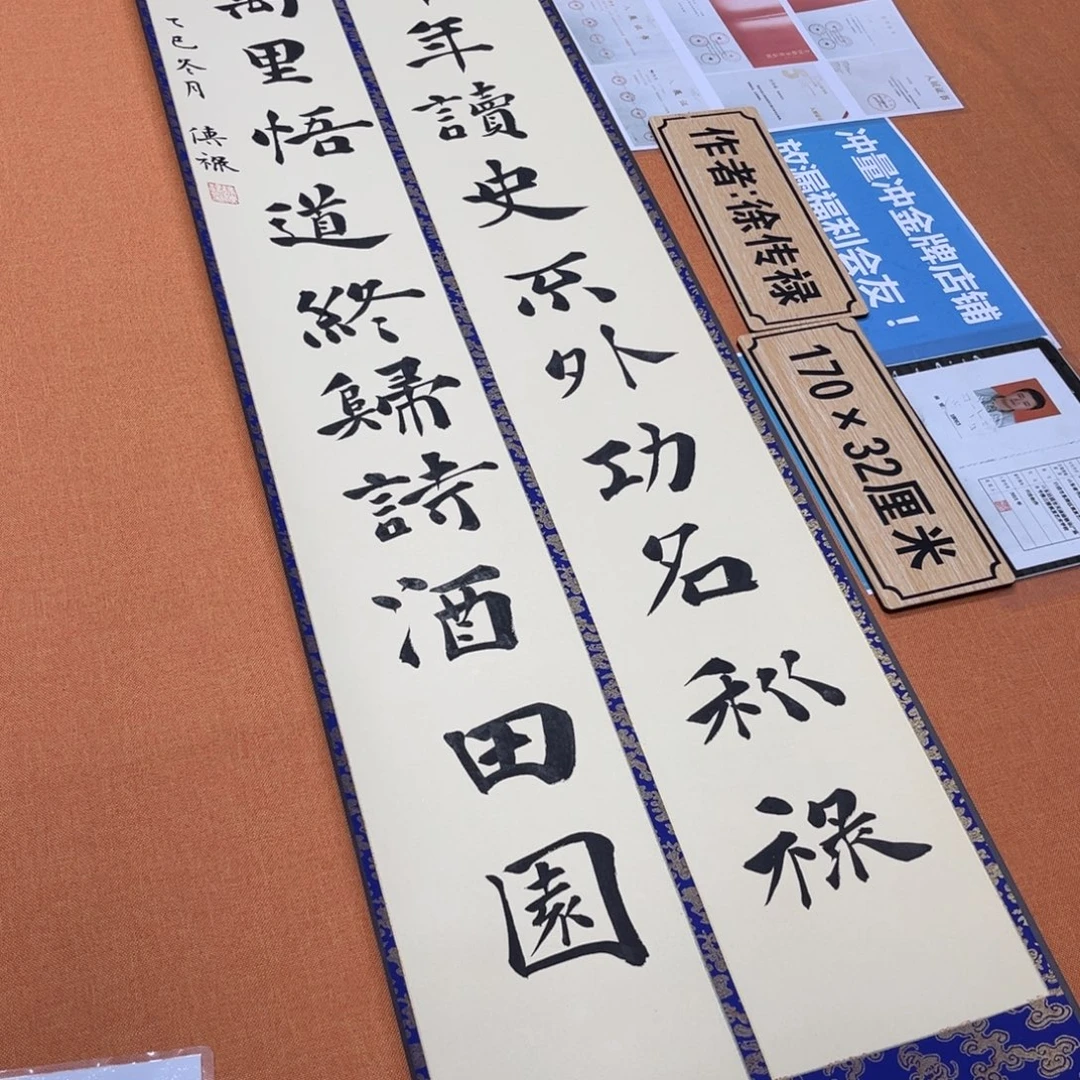 年讀史不外功名利禄
萬里悟道終歸詩酒田園
乙巳冬月 傳禄
作者:徐传禄
170×32厘米
冲量冲金牌店铺
放漏福利会友！